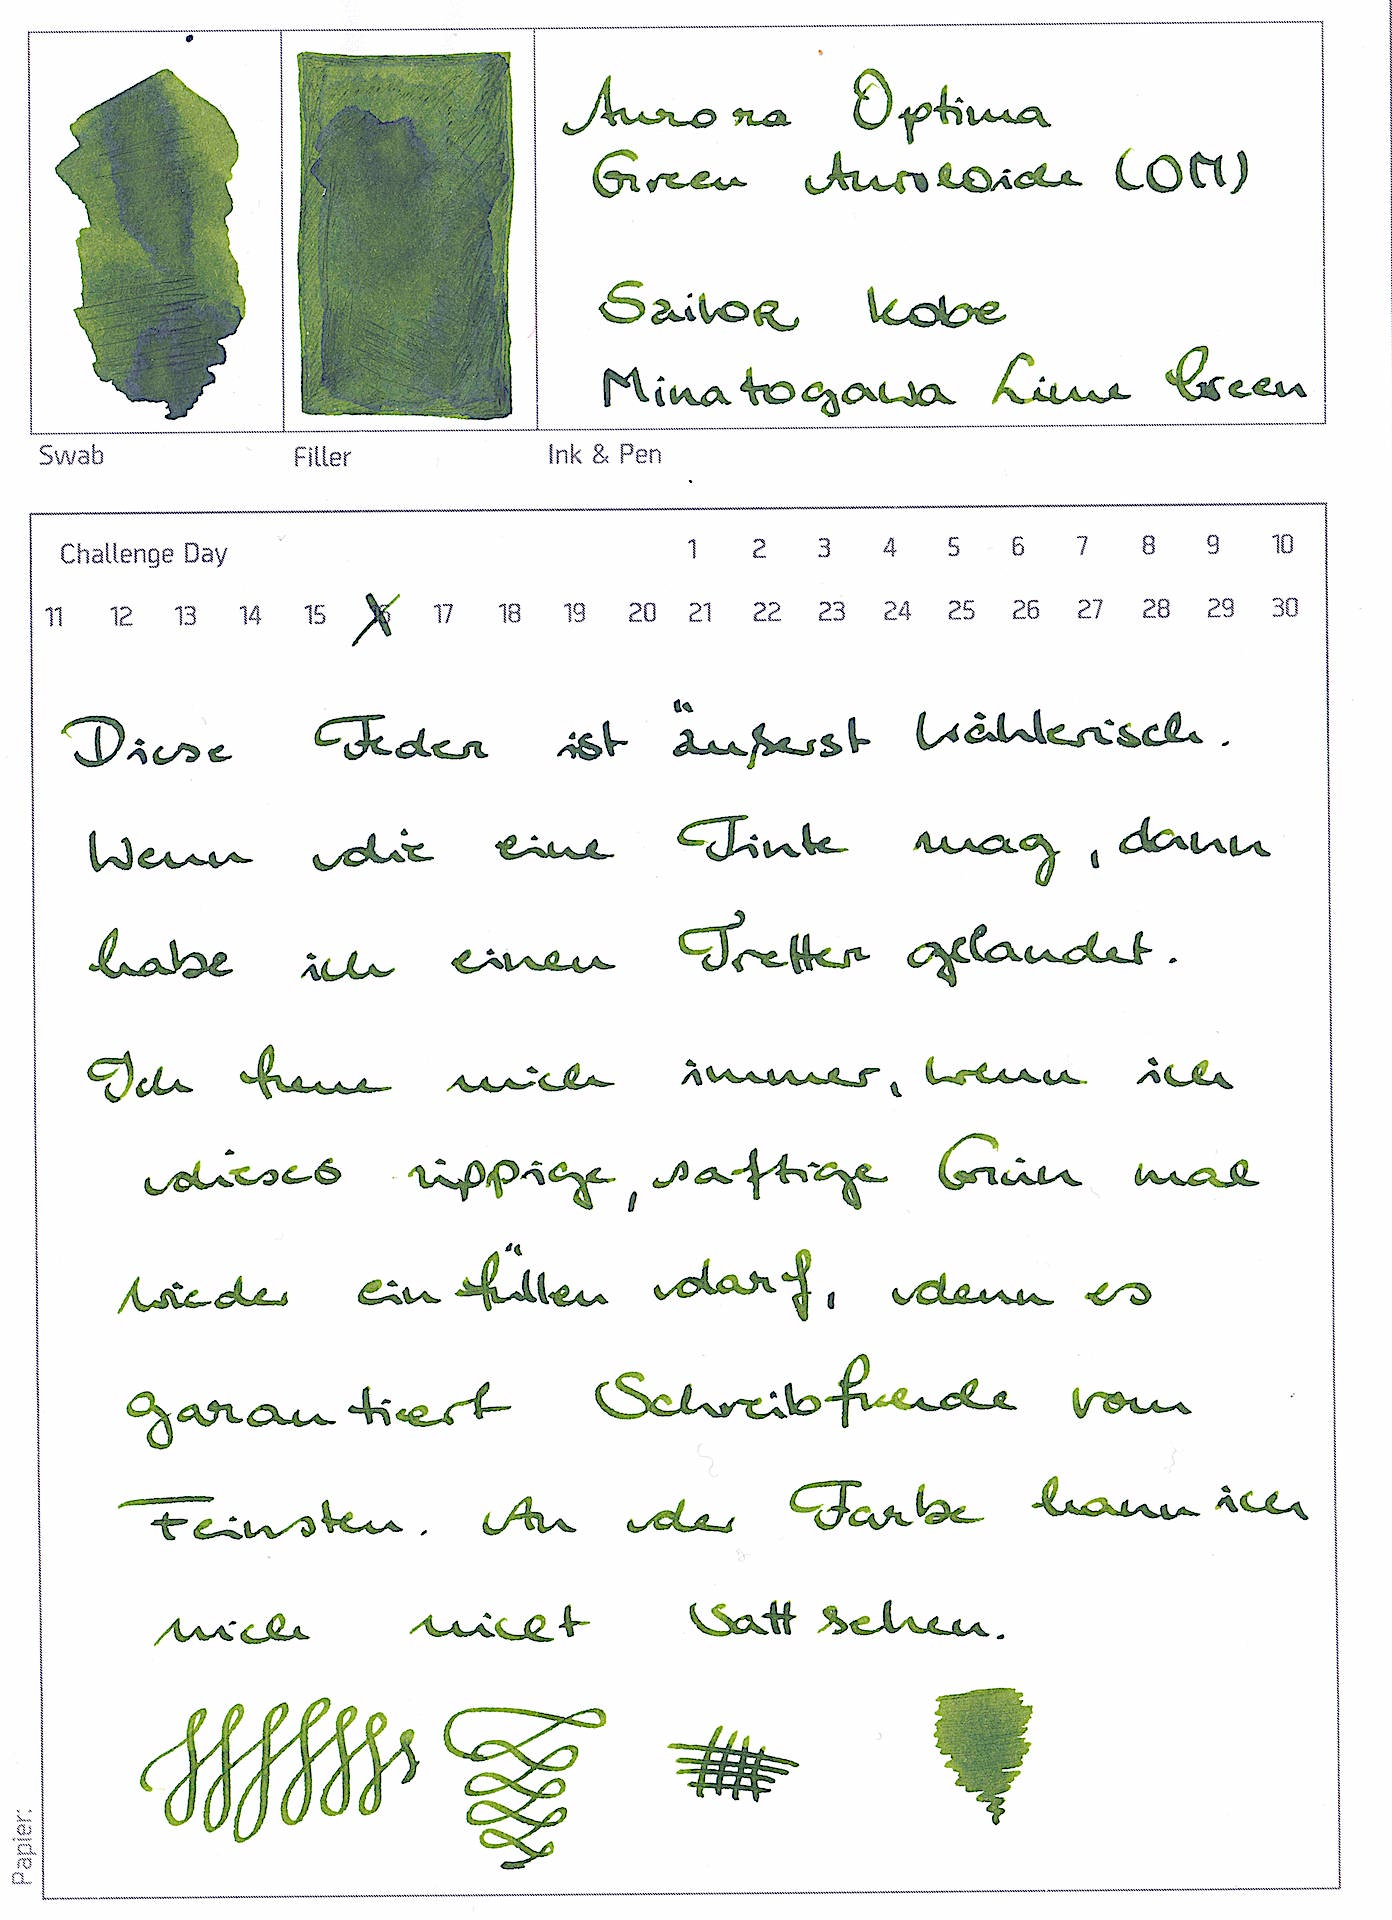 Aurora Optima
Green Auroloide (OM)
Sailor Kobe
Minatogawa Lime Green
Swab Filler Ink & Pen
Challenge Day 1 2 3 4 5 6 7 8 9 10
11 12 13 14 15 16 17 18 19 20 21 22 23 24 25 26 27 28 29 30
Diese Feder ist äußerst wählerisch.
Wenn die eine Tinte mag, dann
habe ich einen Treffer gelandet.
Ich freue mich immer, wenn ich
dieses üppige, saftige Grün mal
wieder einfüllen darf, denn es
garantiert Schreibfreude vom
Feinsten. An der Farbe kann ich
mich nicht satt sehen.
Papier: